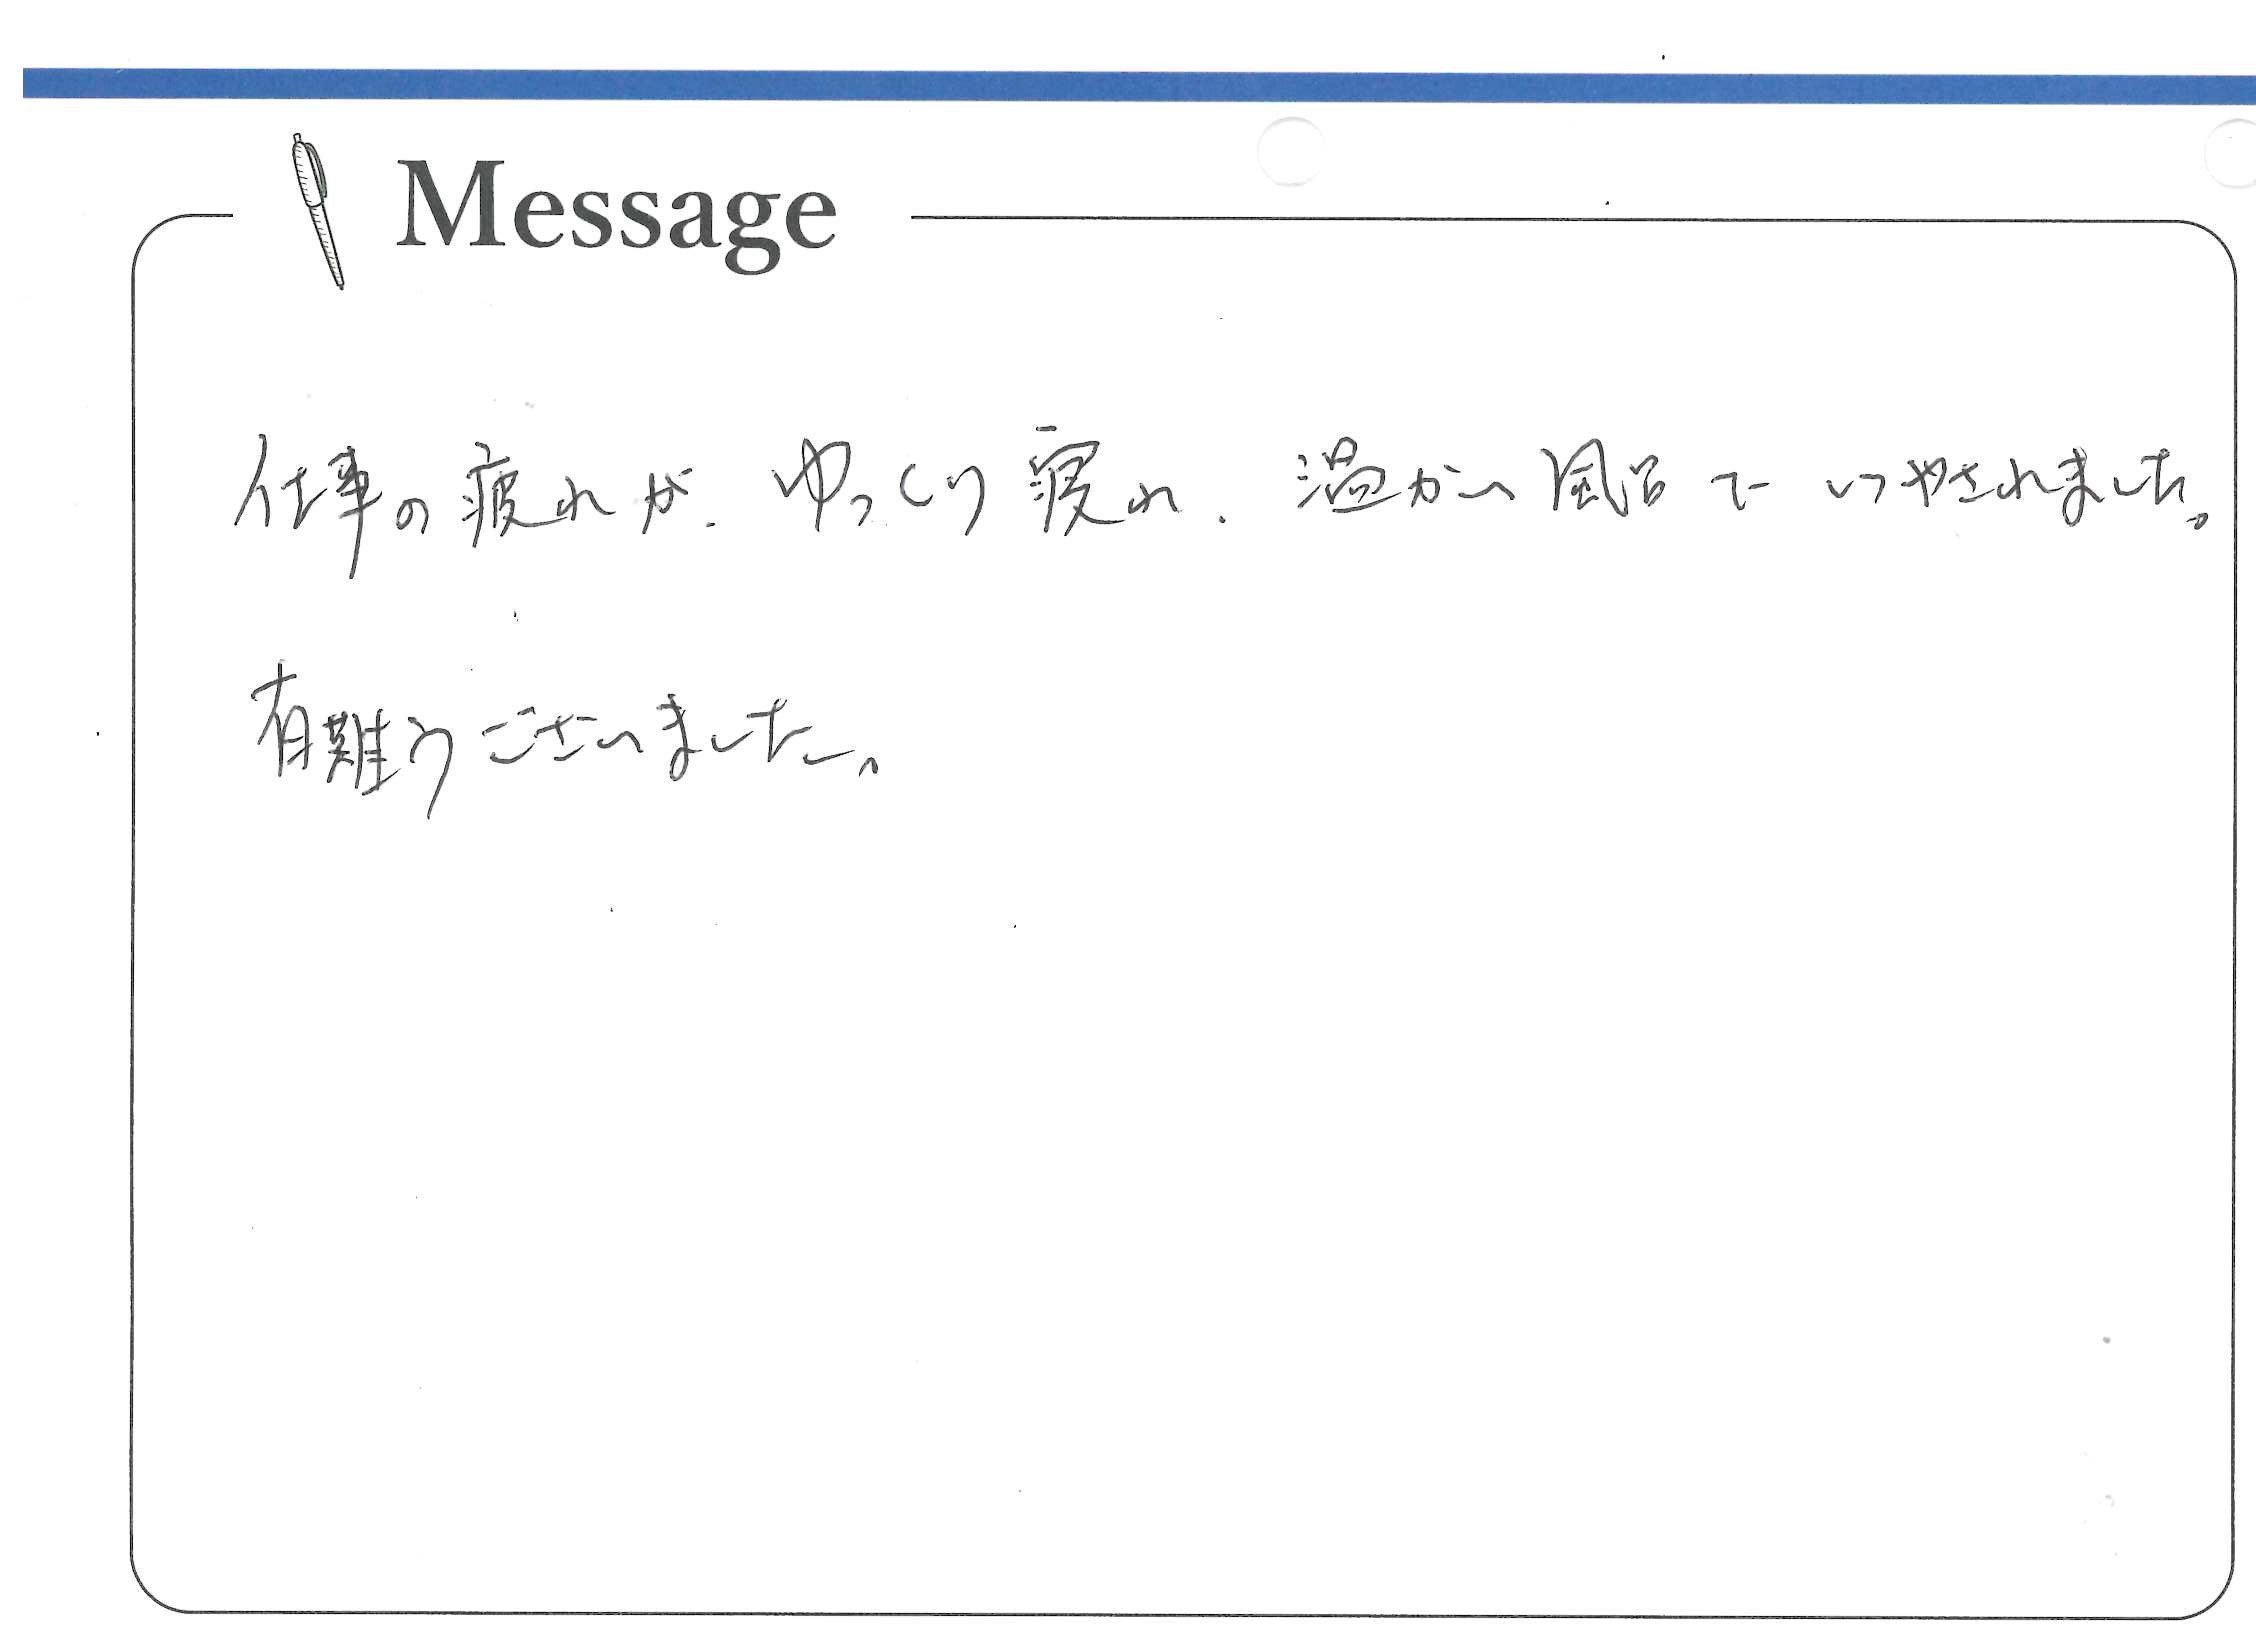 Message
仕事の疲れが、ゆっくり寝れ、温かい風呂で いやされました。
有難うございました。